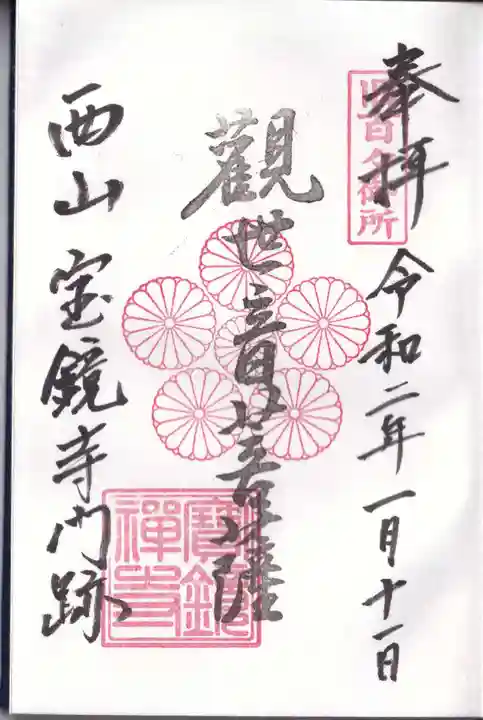 奉拝 令和二年一月十一日
旧百々御所
觀世音菩薩
西山 宝鏡寺門跡
寶鏡禪寺